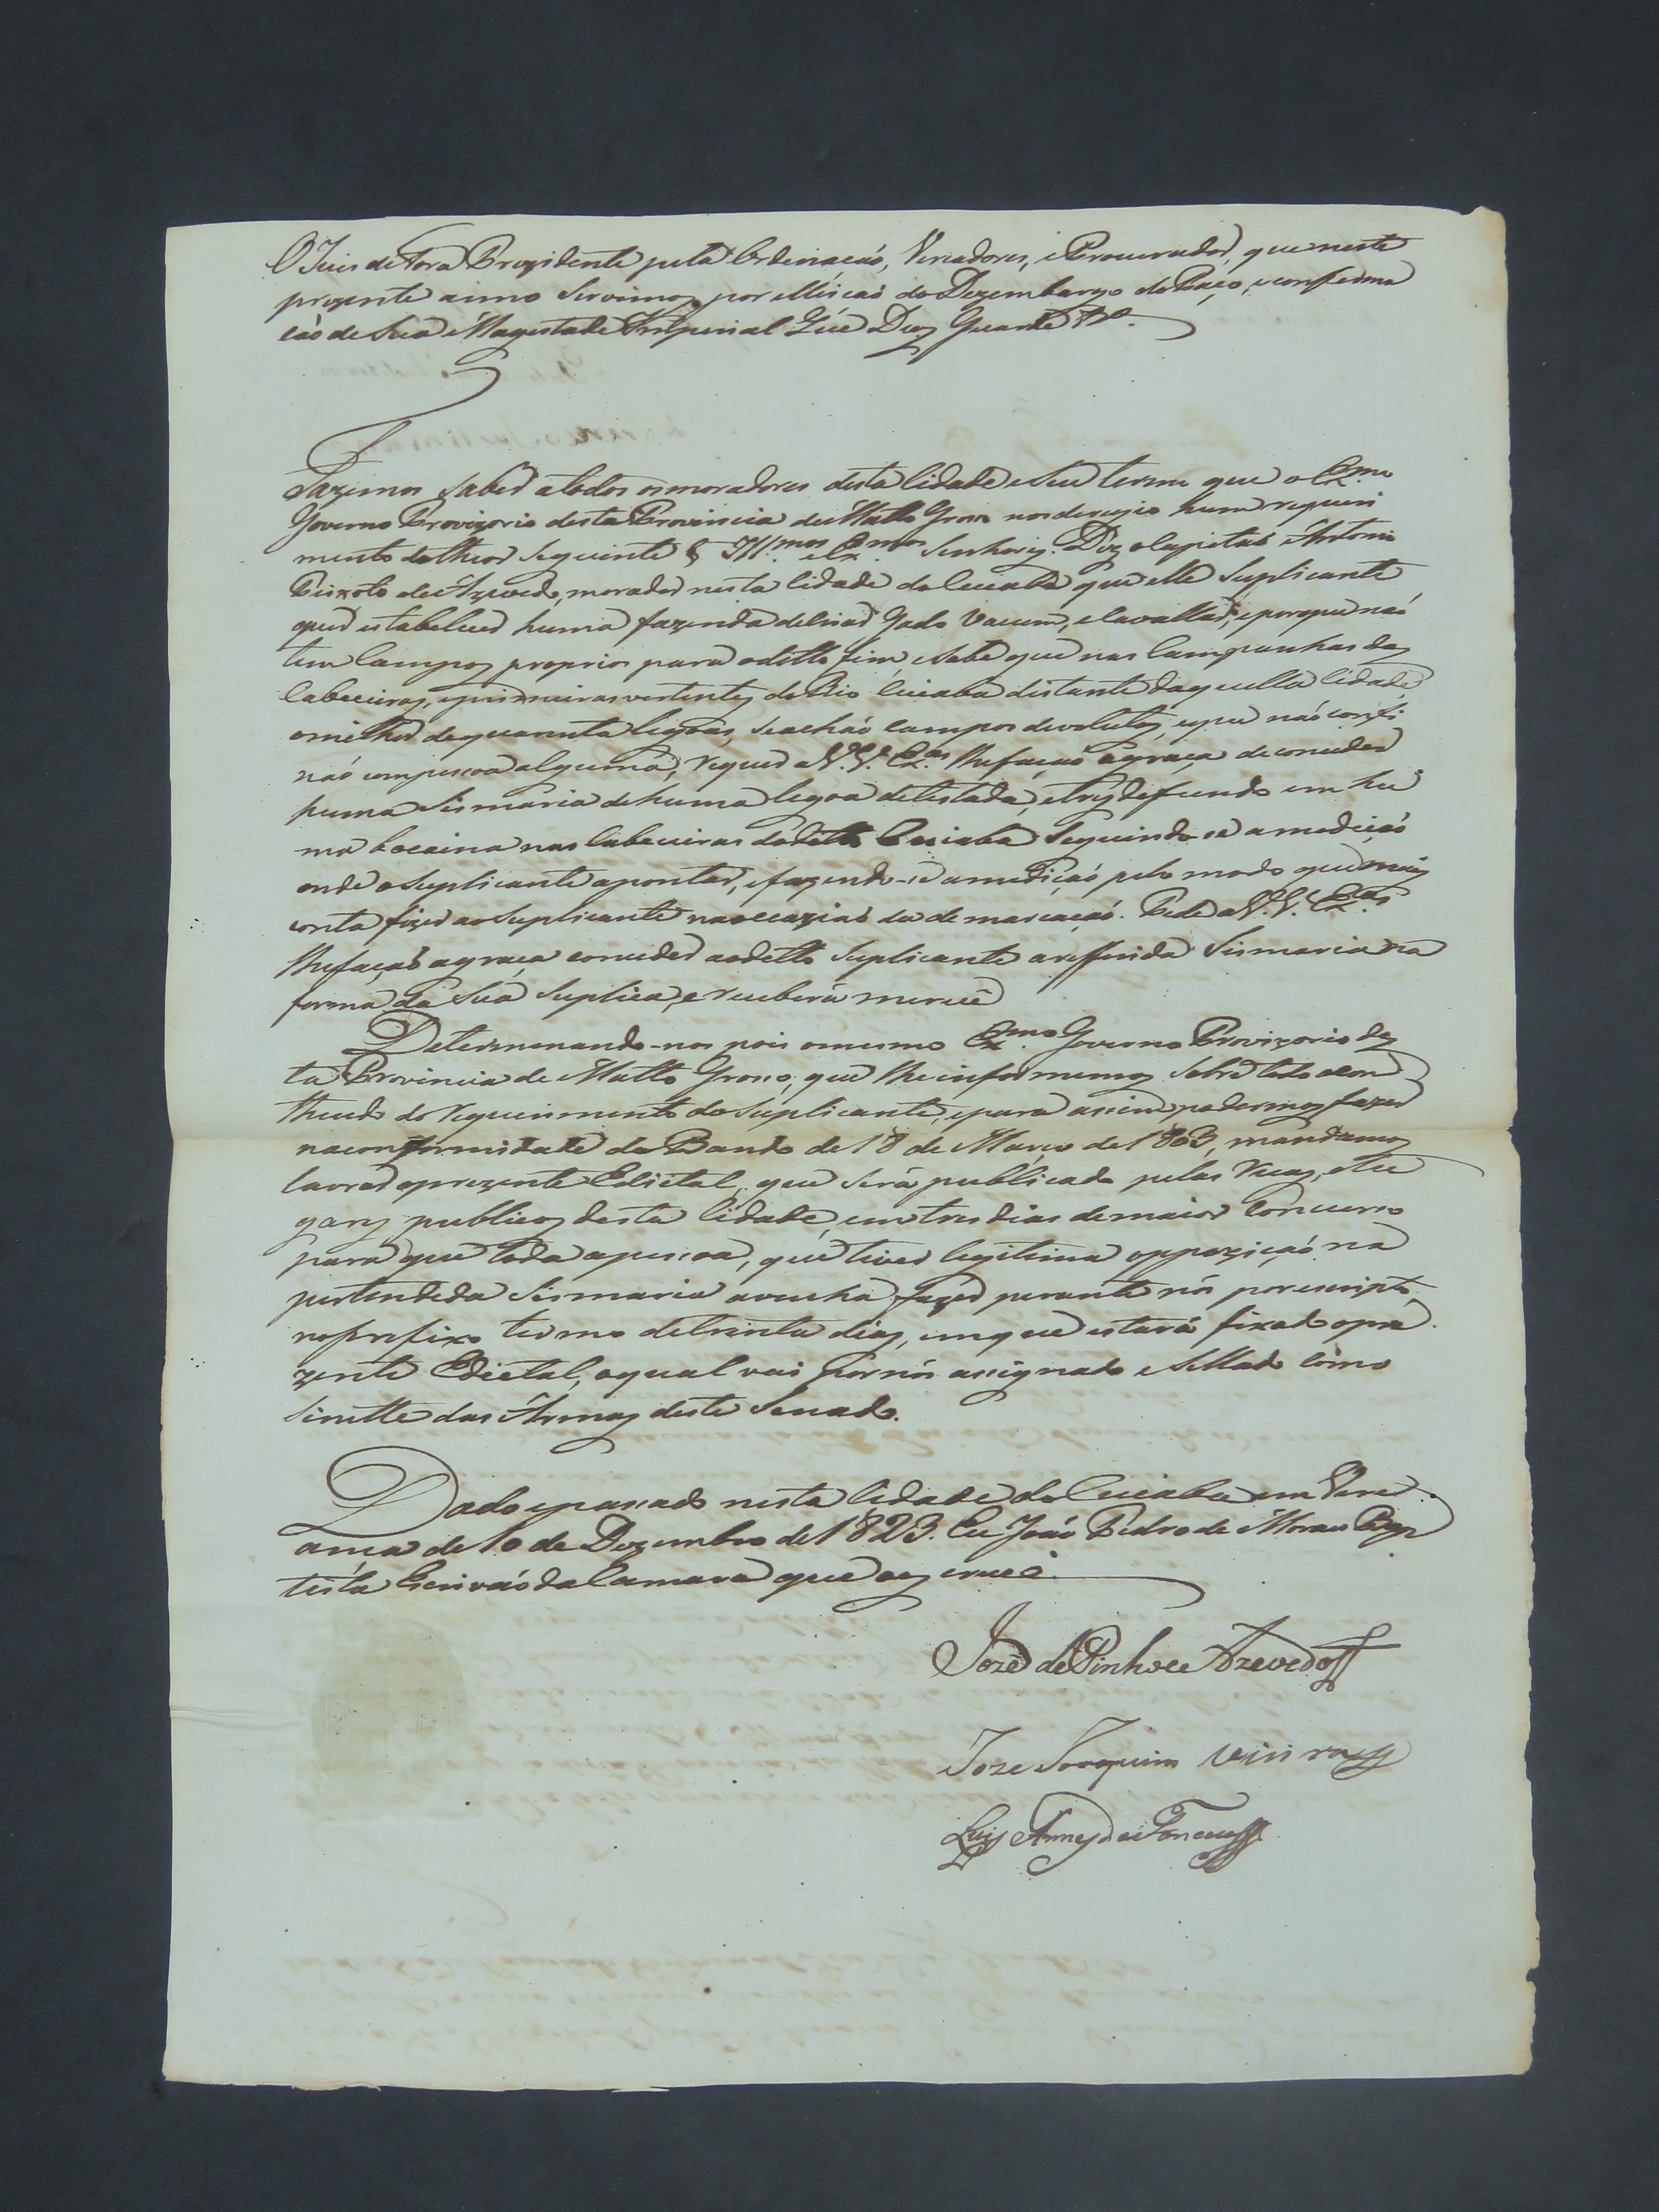 O Juis de Fora Prezidente pela Ordenação, Veriadores, e Procurador, que neste
prezente anno Servimos por elleicaó do Dezembargo do Paço, e confirma
caó de Sua Magestade Imperial Que Deos Guarde &ª.
Fazemos saber a todos os moradores desta Cidade e Seu termo que o Exmo
Governo Provizorio desta Provincia de Matto Grosso nos derigio hum requeri
mento do theor seguinte § Illmos e Exmos Senhores. Diz o Capitaó Antonio
Peixoto de Azevedo, morador nesta Cidade do Cuiabá que elle Suplicante
quer estabelecer huma fazenda de criar Gado Vacum, e Cavallar, e porque naó
tem Campos proprios para o ditto fim, e Sabe que nas Campanhas das
Cabeceiras, e primeiras vertentes do Rio Cuiabá distante daquella Cidade
o melhor de quarenta legoas, se achaó campos devolutos, e que naó confi
naó com pessoa alguma, requer a V.V. Exas lhe façaó a graça de conceder
huma Sismaria de huma legoa de testada, e tres de fundo em hu
ma bocaina nas Cabeceiras do ditto Cuiabá Seguindo-se a mediçaó
onde o Suplicante apontar, e fazendo-se a mediçaó pelo modo que mais
conta fizer ao Suplicante na occaziaó da demarcaçaó. Pede a V.V. Exas
lhe façaó a graça conceder ao ditto Suplicante a refferida Sismaria na
forma da Sua Suplica, e receberá mercê
Determenando-nos pois o mesmo Exmo Governo Provizorio des
ta Provincia de Matto Grosso, que lhe informemos sobre todo o con
theudo do requerimento do Suplicante, e para assim podermos fazer
na conformidade do Bando de 18 de Março de 1803, mandamos
lavrar o prezente Edictal, que será publicado pelas ruas, e lu
gares publicos desta Cidade, em tres dias de maior Concurso
para que toda a pessoa, que tiver legitima oppoziçaó na
pertendida Sismaria a venha fazer perante nós por escripto,
no prefixo termo de trinta dias, em que estará fixado o pre
zente Edictal, o qual vai por nós assignado e Sellado com o
Sinette das Armas deste Senado.
Dado e passado nesta Cidade do Cuiabá em Vere
ança de 10 de Dezembro de 1823. Eu João Pedro de Moraes Bap
tista Escrivaó da Camara que o escrevi.
Jozé de Pinho e Azevedo
Joze Joaquim
Luis